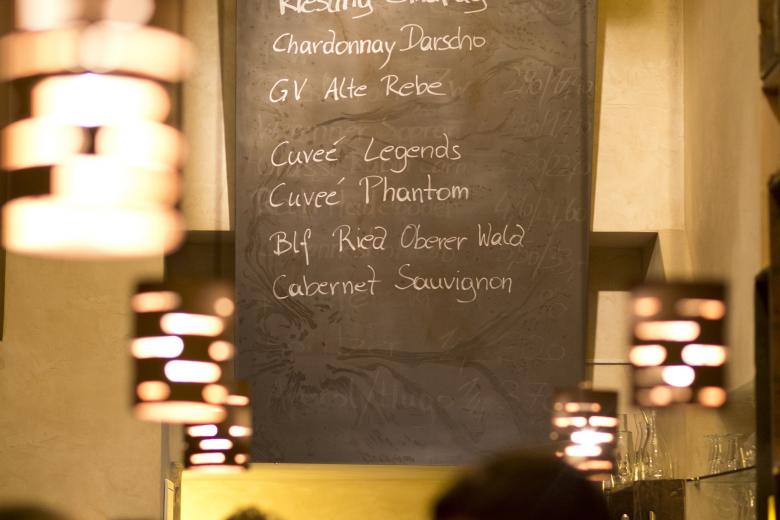 Riesling Smaragd
Chardonnay Darscho
GV Alte Rebe
Cuveé Legends
Cuveé Phantom
Blf Ried Oberer Wald
Cabernet Sauvignon